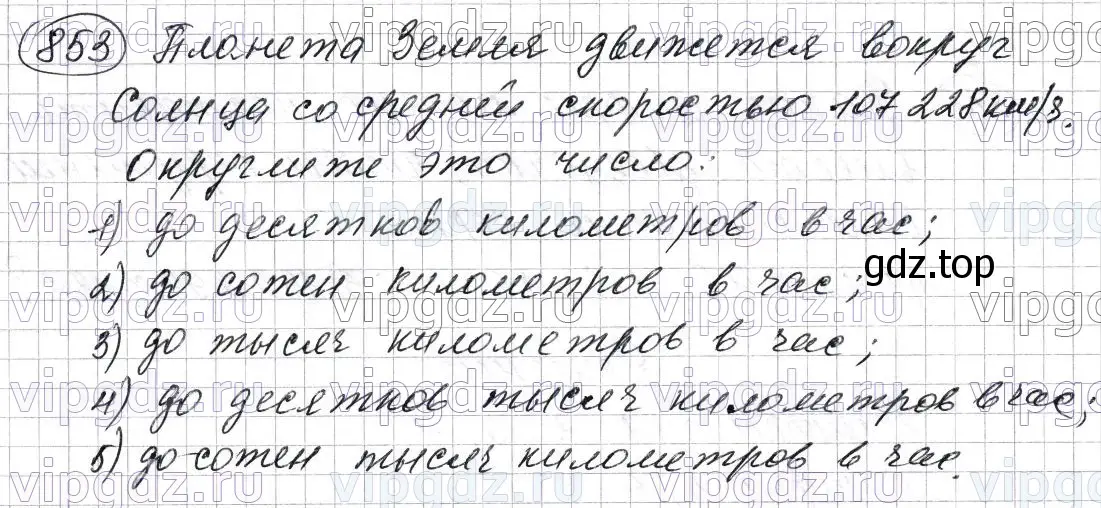 853 Планета Земля движется вокруг
Солнца со средней скоростью 107 228 км/з.
Округлите это число:
1) до десятков километров в час;
2) до сотен километров в час;
gdz.top
3) до тысяч километров в час;
4) до десятков тысяч километров в час;
5) до сотен тысяч километров в час.